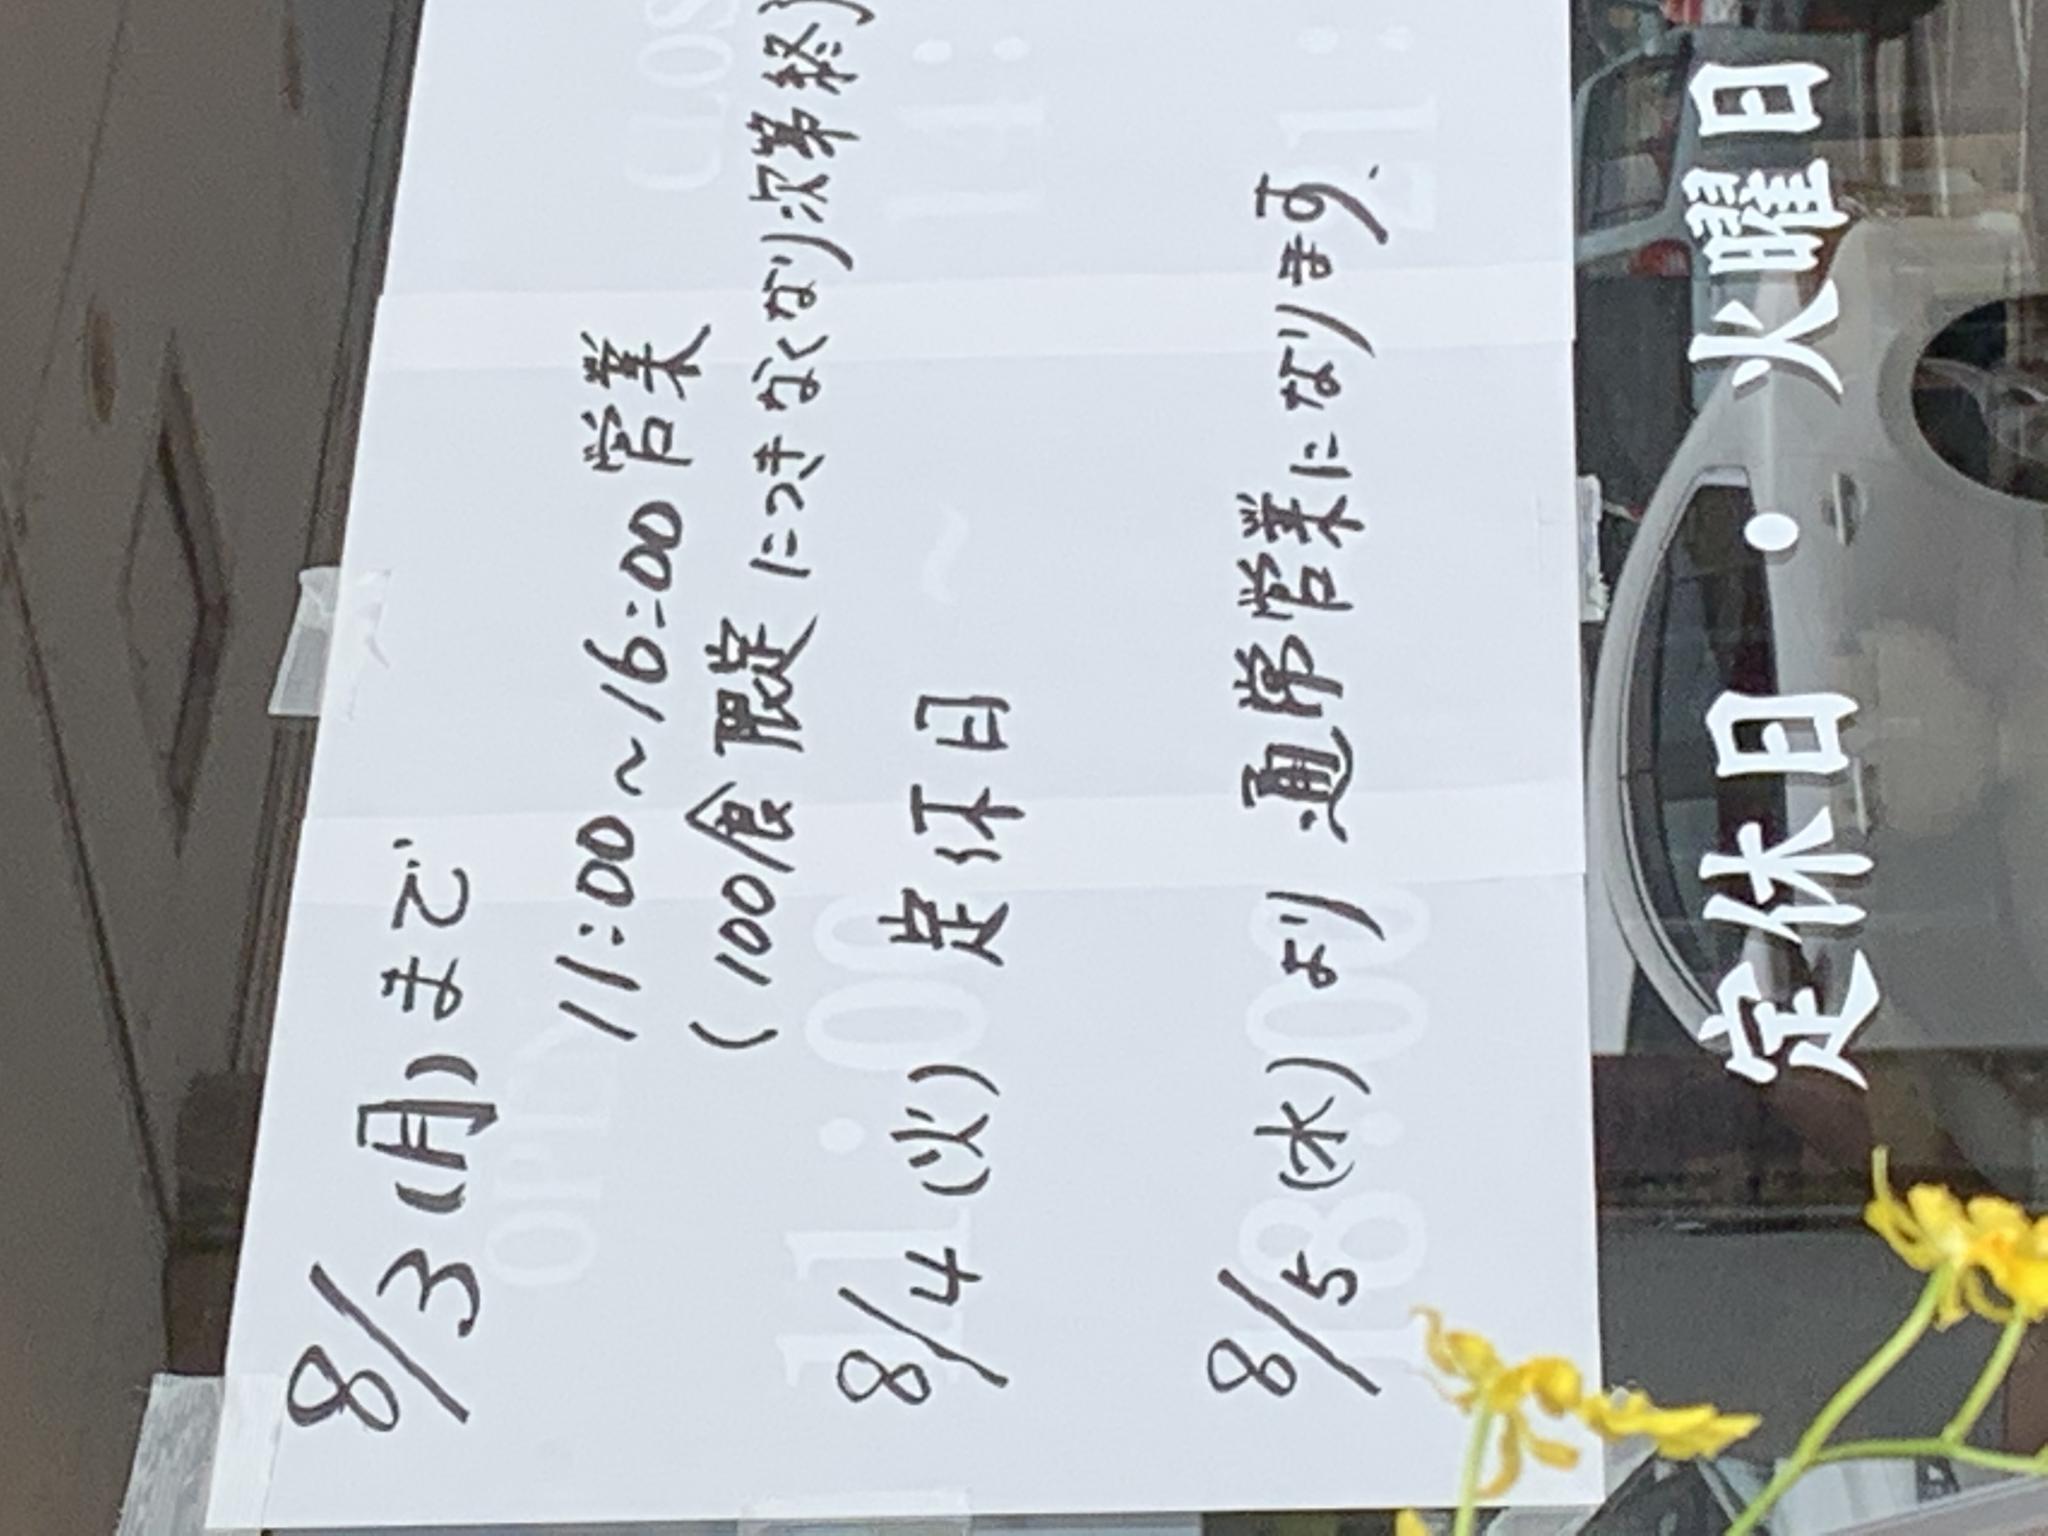 8/3(月)まで
11:00～16:00営業
(100食限定につきなくなり次第終
8/4(火) 定休日
8/5(水)より通常営業になります、
OPEN 11:00 ～ 14:
CLOS
18:00 ～ 21:
定休日・火曜日